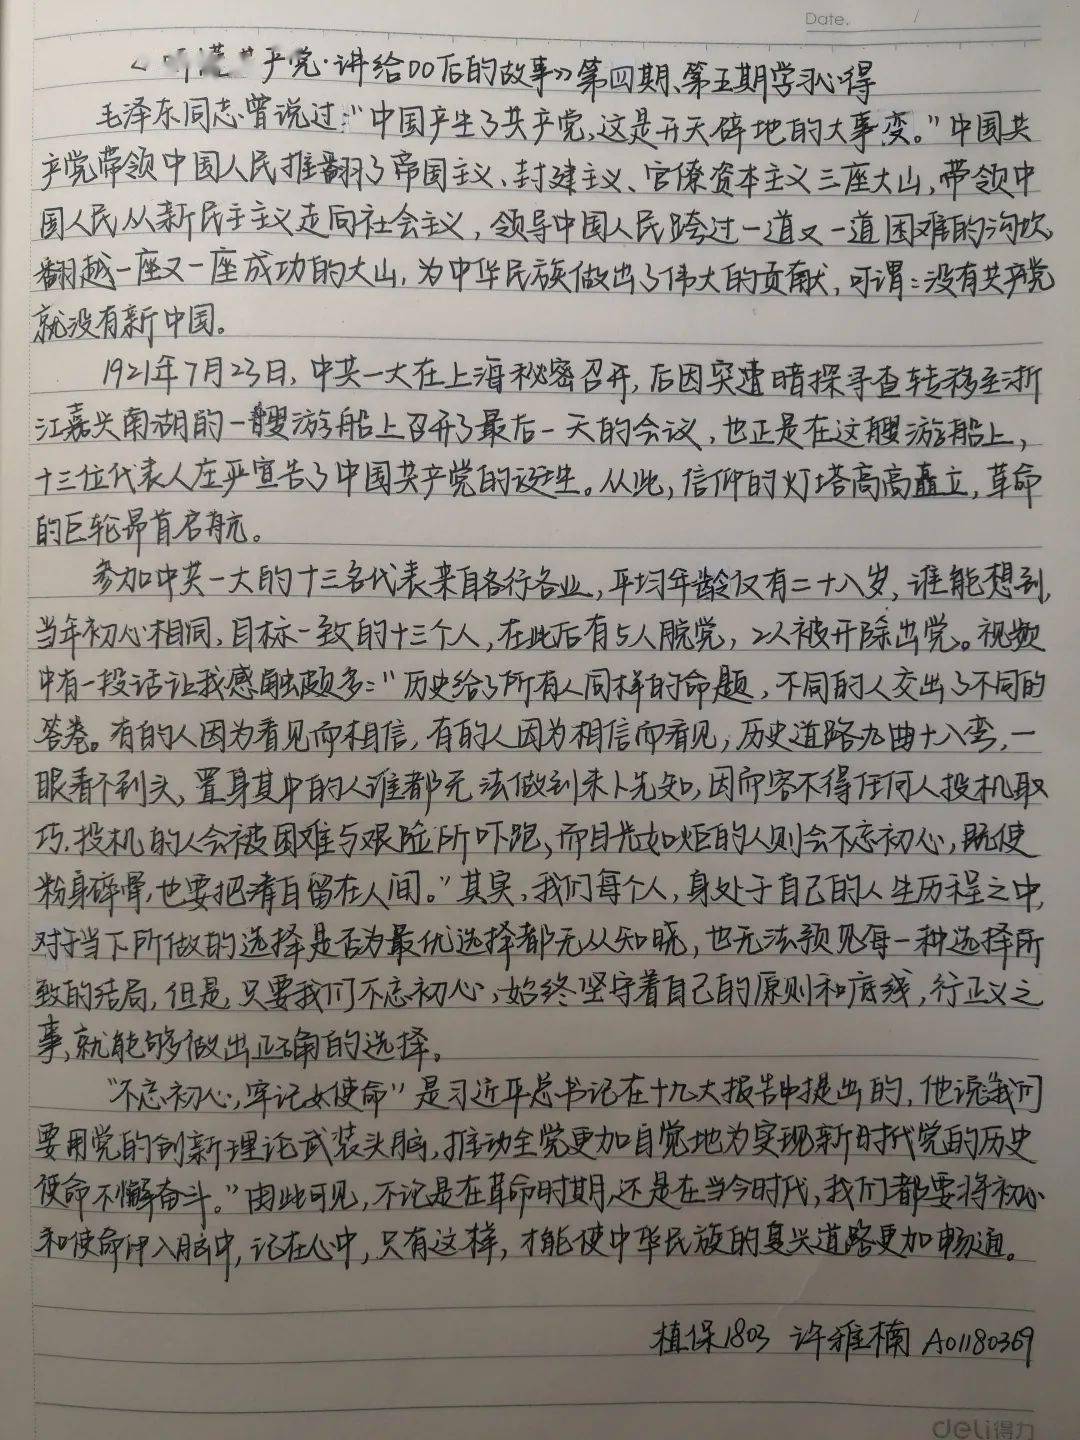 Date. /
产党·讲给00后的故事》第四期、第五期学习心得
毛泽东同志曾说过:“中国产生了共产党,这是开天辟地的大事变。”中国共
产党带领中国人民推翻了帝国主义、封建主义、官僚资本主义三座大山,带领中
国人民从新民主主义走向社会主义,领导中国人民跨过一道又一道困难的沟坎,
翻越一座又一座成功的大山,为中华民族做出了伟大的贡献,可谓:没有共产党
就没有新中国。
1921年7月23日,中共一大在上海秘密召开,后因突遭暗探寻查转移至浙
江嘉兴南湖的一艘游船上召开了最后一天的会议,也正是在这艘游船上,
十三位代表人庄严宣告了中国共产党的诞生。从此,信仰的灯塔高高矗立,革命
的巨轮昂首启航。
参加中共一大的十三名代表来自各行各业,平均年龄仅有二十八岁,谁能想到,
当年初心相同,目标一致的十三个人,在此后有5人脱党,2人被开除出党。视频
中有一段话让我感触颇多:“历史给了所有人同样的命题,不同的人交出了不同的
答卷。有的人因为看见而相信,有的人因为相信而看见,历史道路九曲十八弯,一
眼看不到头,置身其中的人谁都无法做到未卜先知,因而容不得任何人投机取
巧,投机的人会被困难与艰险所吓跑,而目光如炬的人则会不忘初心,既使
粉身碎骨,也要把清白留在人间。”其实,我们每个人,身处于自己的人生历程之中,
对于当下所做的选择是否为最优选择都无从知晓,也无法预见每一种选择所
致的结局,但是,只要我们不忘初心,始终坚守着自己的原则和底线,行正义之
事,就能够做出正确的选择。
“不忘初心,牢记使命”是习近平总书记在十九大报告中提出的,他说“我们
要用党的创新理论武装头脑,推动全党更加自觉地为实现新时代党的历史
使命不懈奋斗。”由此可见,不论是在革命时期,还是在当今时代,我们都要将初心
和使命印入脑中,记在心中,只有这样,才能使中华民族的复兴道路更加畅通。
植保1803 许雅楠 A01180369
deli得力